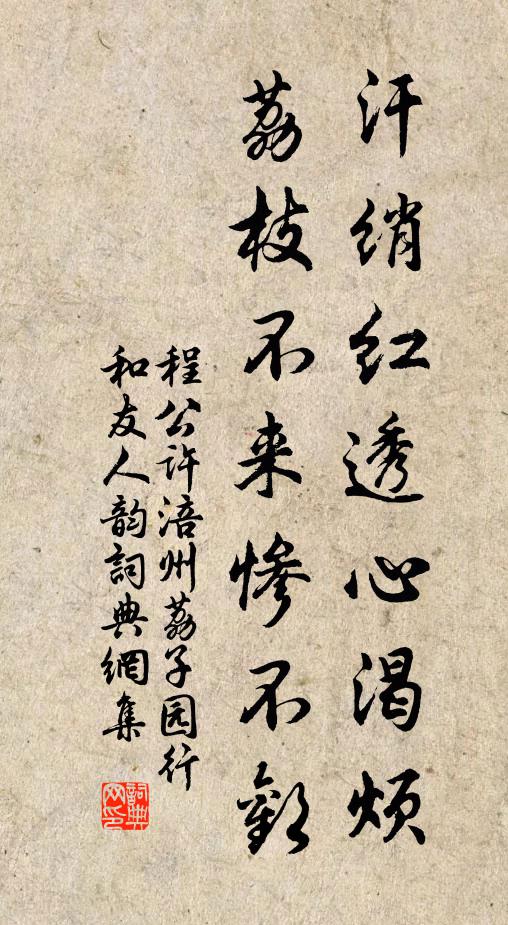 汗绡红透心渴烦
荔枝不来惨不歡
程公许涪州荔子园行
和友人韵詞典網集
詞典网印